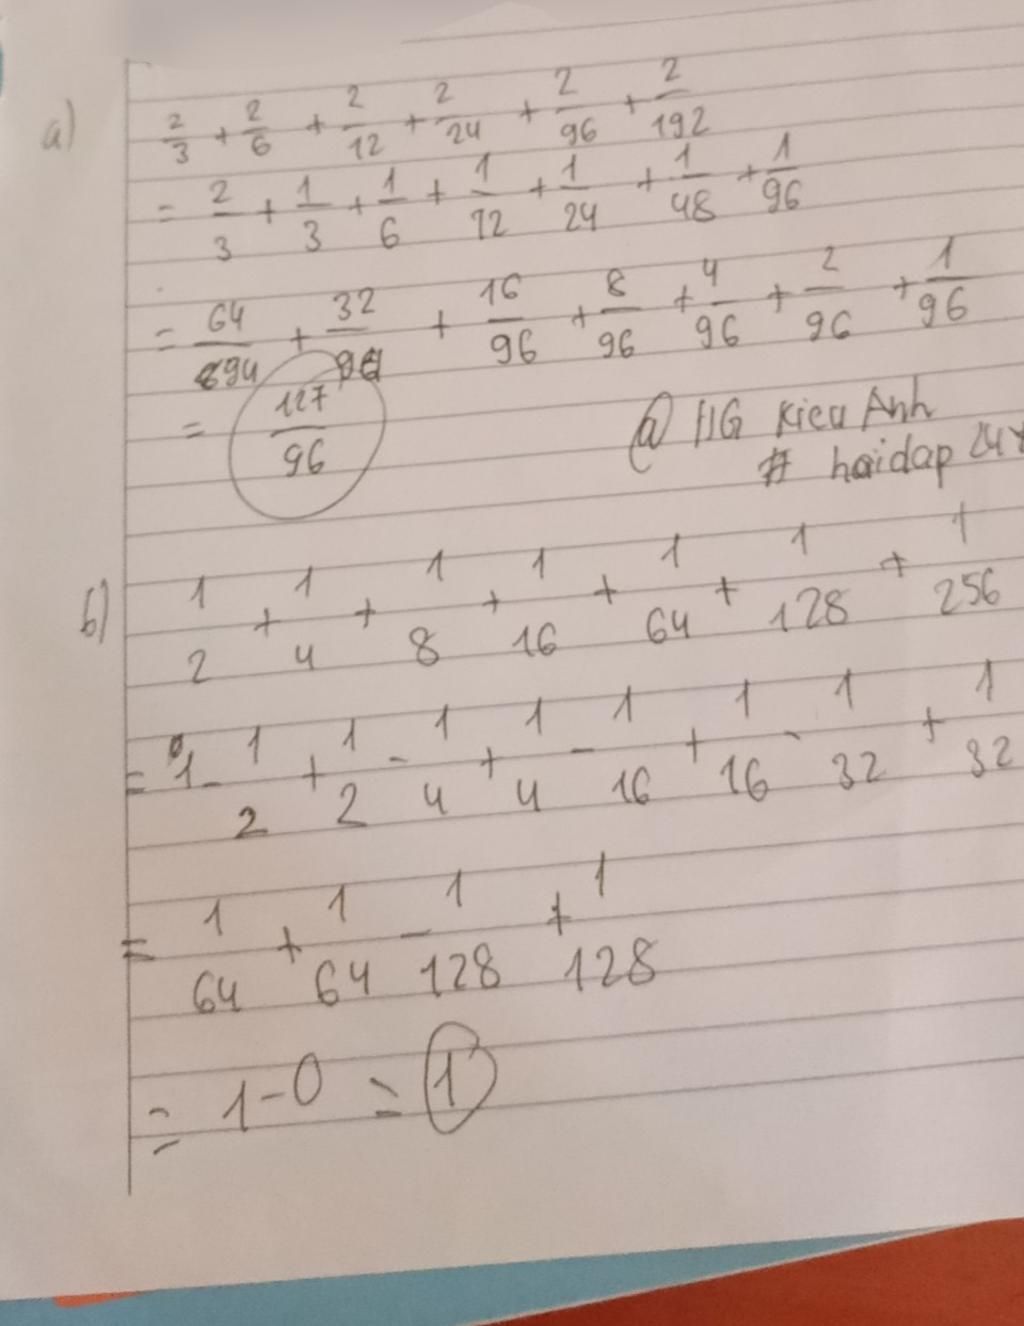 a) 2/3 + 2/6 + 2/12 + 2/24 + 2/96 + 2/192
= 2/3 + 1/3 + 1/6 + 1/12 + 1/24 + 1/48 + 1/96
= 64/894 + 32/96 + 16/96 + 8/96 + 4/96 + 2/96 + 1/96
= 127/96
@ HG Kieu Anh
# haidap 247
b) 1/2 + 1/4 + 1/8 + 1/16 + 1/64 + 1/128 + 1/256
= 1 - 1/2 + 1/2 - 1/4 + 1/4 - 1/16 + 1/16 - 1/32 + 1/32
= 1/64 + 1/64 - 1/128 + 1/128
= 1 - 0 = 1